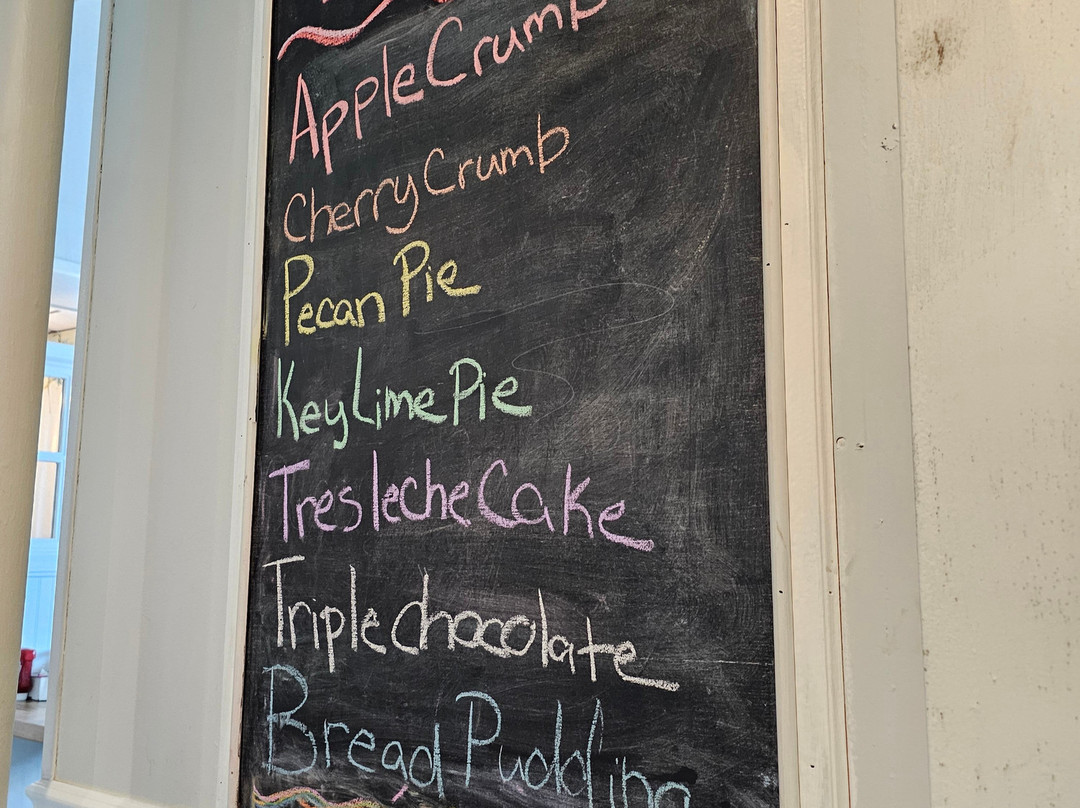 Apple Crumb
Cherry Crumb
Pecan Pie
Key Lime Pie
Tres leche Cake
Triple chocolate
Bread Pudding